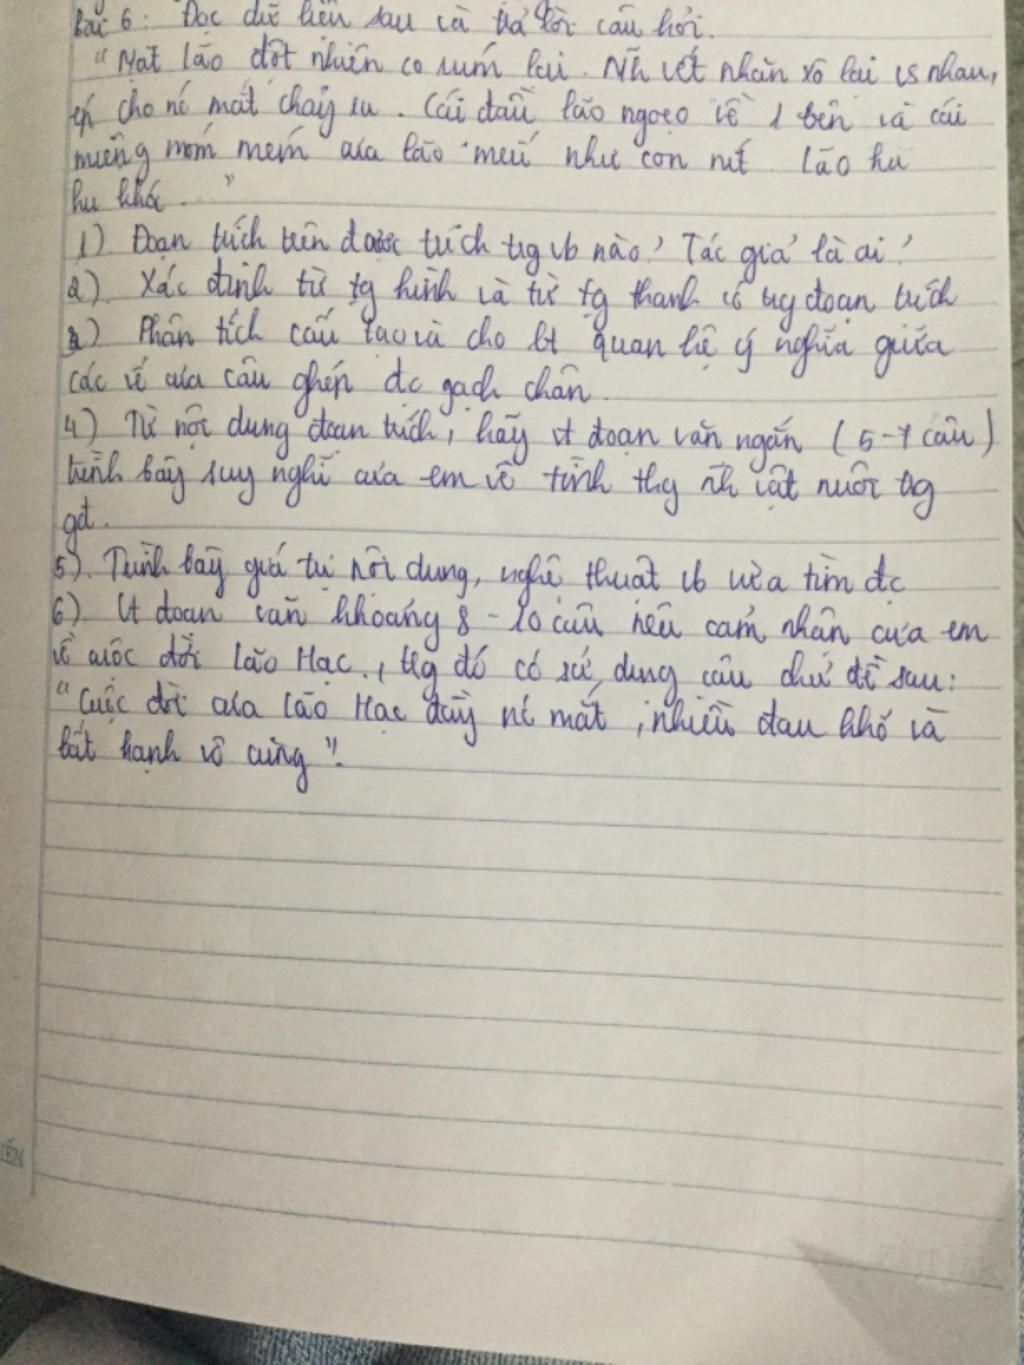 Bài 6: Đọc dữ liệu sau và trả lời câu hỏi.
"Mặt lão đột nhiên co rúm lại. Nh vết nhăn xô lại vs nhau,
ép cho nc mắt chảy ra. Cái đầu lão ngoẹo về 1 bên và cái
miệng móm mém của lão mếu như con nít. Lão hu
hu khóc..."
1) Đoạn trích trên được trích trg vb nào? Tác giả là ai?
2) Xác định từ tg hình và từ tg thanh có trg đoạn trích
3) Phân tích cấu tạo và cho bt quan hệ ý nghĩa giữa
các vế của câu ghép đc gạch chân.
4) Từ nội dung đoạn trích, hãy vt đoạn văn ngắn (5-7 câu)
trình bày suy nghĩ của em về tình thg vật nuôi trg
gđ.
5) Trình bày giá trị nội dung, nghệ thuật vb vừa tìm đc
6) Vt đoạn văn khoảng 8-10 câu nêu cảm nhận của em
về cuộc đời lão Hạc, trg đó có sử dụng câu chủ đề sau:
"Cuộc đời của lão Hạc đầy nc mắt, nhiều đau khổ và
bất hạnh vô cùng".